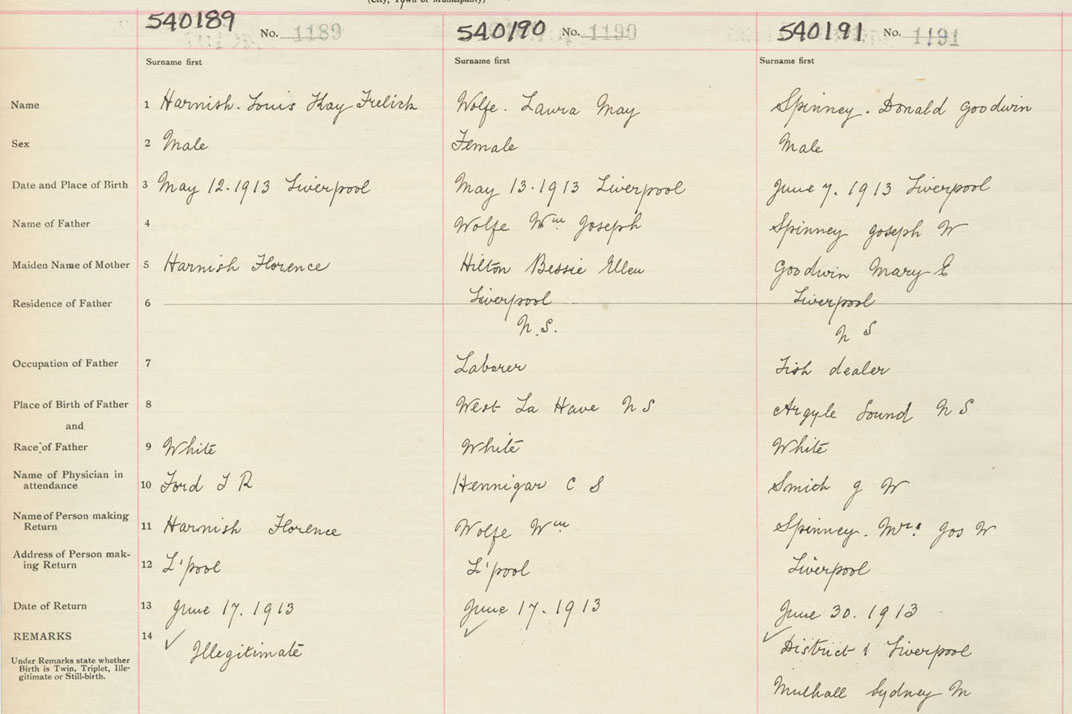 (City, Town or Municipality)
540189 No. 1189 540190 No. 1190 540191 No. 1191
Surname first Surname first Surname first
Name 1 Harnish. Louis Kay Frelick Wolfe. Laura May Spinney. Donald Goodwin
Sex 2 Male Female Male
Date and Place of Birth 3 May 12. 1913 Liverpool May 13. 1913 Liverpool June 7. 1913 Liverpool
Name of Father 4 Wolfe Wm Joseph Spinney Joseph W
Maiden Name of Mother 5 Harnish Florence Hilton Bessie Ellen Goodwin Mary E
Residence of Father 6 Liverpool Liverpool
N.S. N S
Occupation of Father 7 Laborer Fish dealer
Place of Birth of Father 8 West La Have N S Argyle Sound N S
and
Race of Father 9 White White White
Name of Physician in
attendance 10 Ford T R Hennigar C S Smith J W
Name of Person making
Return 11 Harnish Florence Wolfe Wm Spinney. Mrs. Jos W
Address of Person mak-
ing Return 12 L'pool L'pool Liverpool
Date of Return 13 June 17. 1913 June 17. 1913 June 30. 1913
REMARKS 14 ✓ Illegitimate ✓ ✓ District 1 Liverpool
Under Remarks state whether
Birth is Twin, Triplet, Ille-
gitimate or Still-birth.
Mulhall Sydney M